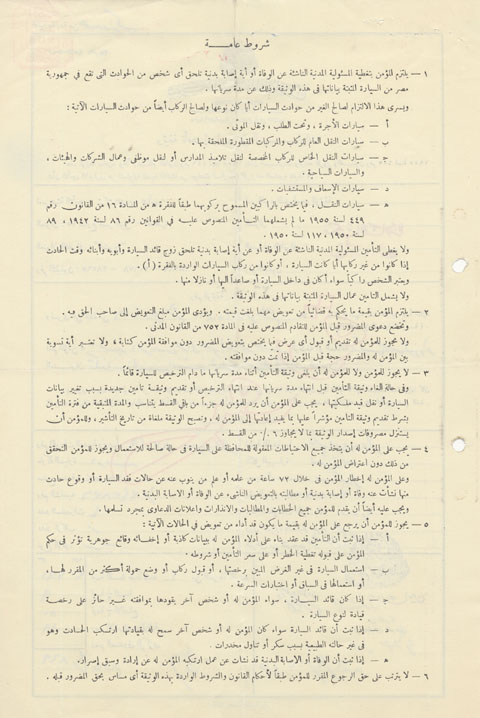 شروط عامة
١ — يلتزم المؤمن بتغطية المسئولية المدنية الناشئة عن الوفاة أو أية إصابة بدنية تلحق أى شخص من الحوادث التى تقع فى جمهورية
مصر من السيارة المثبتة بياناتها فى هذه الوثيقة وذلك عن مدة سريانها .
ويسرى هذا الالتزام لصالح الغير من حوادث السيارات أيا كان نوعها ولصالح الركاب أيضاً من حوادث السيارات الآتية :
أ — سيارات الأجرة ، وتحت الطلب ، ونقل الموتى .
ب — سيارات النقل العام للركاب والمركبات المقطورة الملحقة بها .
جـ — سيارات النقل الخاص للركاب المخصصة لنقل تلاميذ المدارس أو لنقل موظفى وعمال الشركات والهيئات ،
والسيارات السياحية .
د — سيارات الإسعاف والمستشفيات .
هـ — سيارات النقل ، فيما يختص بالراكبين المسموح بركوبهما طبقاً للفقرة هـ من المادة ١٦ من القانون رقم
٤٤٩ لسنة ١٩٥٥ ما لم يشملهما التأمين المنصوص عليه فى القوانين رقم ٨٦ لسنة ١٩٤٢ ، ٨٩
لسنة ١٩٥٠ ، ١١٧ لسنة ١٩٥٠ .
ولا يغطى التأمين المسئولية المدنية الناشئة عن الوفاة أو عن أية إصابة بدنية تلحق زوج قائد السيارة وأبويه وأبنائه وقت الحادث
إذا كانوا من غير ركابها أيا كانت السيارة ، أو كانوا من ركاب السيارات الواردة بالفقرة ( أ ) .
ويعتبر الشخص راكباً سواء أكان فى داخل السيارة أو صاعداً اليها أو نازلا منها .
ولا يشمل التأمين عمال السيارة المثبتة بياناتها فى هذه الوثيقة .
٢ — يلتزم المؤمن بقيمة ما يحكم به قضائياً من تعويض مهما بلغت قيمته . ويؤدى المؤمن مبلغ التعويض إلى صاحب الحق فيه .
وتخضع دعوى المضرور قبل المؤمن للتقادم المنصوص عليه فى المادة ٧٥٢ من القانون المدنى .
ولا يجوز للمؤمن له تقديم أو قبول أى عرض فيما يختص بتعويض المضرور دون موافقة المؤمن كتابة ، ولا تعتبر أية تسوية
بين المؤمن له والمضرور حجة قبل المؤمن إذا تمت دون موافقته .
٣ — لا يجوز للمؤمن ولا للمؤمن له أن يلغى وثيقة التأمين أثناء مدة سريانها ما دام الترخيص للسيارة قائماً .
وفى حالة الغاء وثيقة التأمين قبل انتهاء مدة سريانها عند انتهاء الترخيص أو تقديم وثيقة تأمين جديدة بسبب تغيير بيانات
السيارة أو نقل قيد ملكيتها ، يجب على المؤمن أن يرد للمؤمن له جزءاً من باقى القسط يتناسب والمدة المتبقية من فترة التأمين
بشرط تقديم وثيقة التأمين مؤشراً عليها بما يفيد إعادتها إلى المؤمن له ، وتصبح الوثيقة ملغاة من تاريخ التأشير ، وللمؤمن أن
يستنزل مصروفات إصدار الوثيقة بما لا يجاوز ٦ ٪ من القسط .
٤ — يجب على المؤمن له أن يتخذ جميع الاحتياطات المعقولة للمحافظة على السيارة فى حالة صالحة للاستعمال ويجوز للمؤمن التحقق
من ذلك دون اعتراض المؤمن له .
وعلى المؤمن له إخطار المؤمن فى خلال ٧٢ ساعة من علمه أو علم من ينوب عنه عن حالات فقد السيارة أو وقوع حادث
منها نشأت عنه وفاة أو إصابة بدنية أو مطالبته بالتعويض الناشئ عن الوفاة أو الاصابة البدنية .
ويجب عليه أيضاً أن يقدم للمؤمن جميع الخطابات والمطالبات والانذارات واعلانات الدعاوى بمجرد تسلمها .
٥ — يجوز للمؤمن أن يرجع على المؤمن له بقيمة ما يكون قد أداه من تعويض فى الحالات الآتية :
أ — إذا ثبت أن التأمين قد عقد بناء على أدلاء المؤمن له ببيانات كاذبة أو إخفائه وقائع جوهرية تؤثر فى حكم
المؤمن على قبوله تغطية الخطر أو على سعر التأمين أو شروطه .
ب — استعمال السيارة فى غير الغرض المبين برخصتها ، أو قبول ركاب أو وضع حمولة أكثر من المقرر لها ،
أو استعمالها فى السباق أو اختبارات السرعة .
جـ — إذا كان قائد السيارة ، سواء المؤمن له أو شخص آخر يقودها بموافقته غير حائز على رخصة
قيادة لنوع السيارة .
د — إذا ثبت أن قائد السيارة سواء كان المؤمن له أو شخص آخر سمح له بقيادتها ارتكب الحادث وهو
فى غير حالته الطبيعية بسبب سكر أو تناول مخدرات .
هـ — إذا ثبت أن الوفاة أو الاصابة البدنية قد نشأت عن عمل ارتكبه المؤمن له عن إرادة وسبق إصرار .
٦ — لا يترتب على حق الرجوع المقرر للمؤمن طبقاً لأحكام القانون والشروط الواردة بهذه الوثيقة أى مساس بحق المضرور قبله .